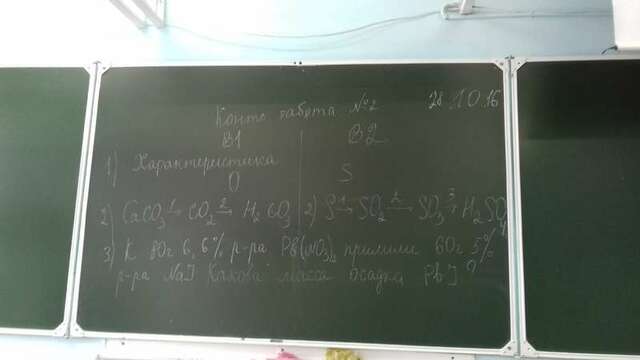 Контр работа №2 28.10.16
В1 В2
1) Характеристика
O S
2) CaCO3 1→ CO2 2→ H2CO3 2) S 1→ SO2 2→ SO3 3→ H2SO4
3) К 80г 6,6% р-ра Pb(NO3)2 прилили 60г 5%
р-ра NaJ Какова масса осадка PbJ ?